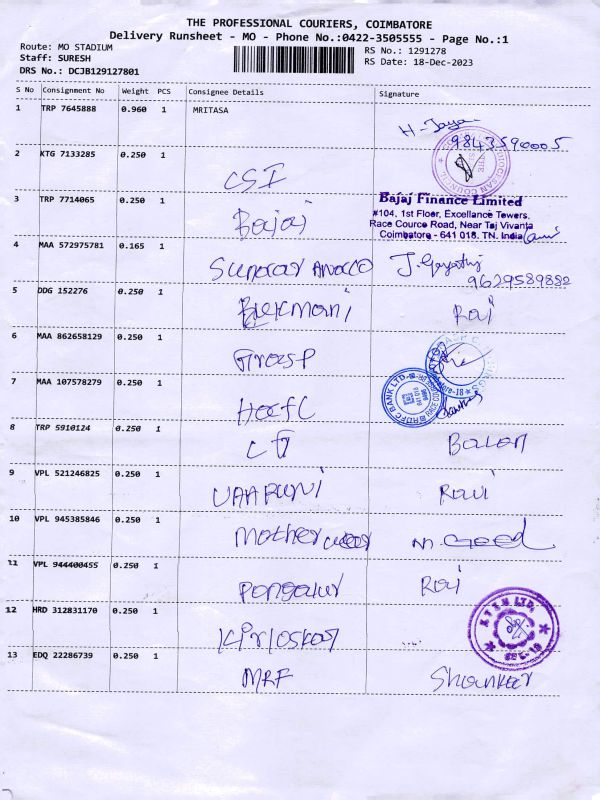 THE PROFESSIONAL COURIERS, COIMBATORE
Delivery Runsheet - MO - Phone No.:0422-3505555 - Page No.:1
Route: MO STADIUM
Staff: SURESH
DRS No.: DCJB129127801
RS No.: 1291278
RS Date: 18-Dec-2023
S No Consignment No Weight PCS Consignee Details Signature
1 TRP 7645888 0.960 1 MRITASA H-Jaya
9843590005
2 KTG 7133285 0.250 1 CSI
3 TRP 7714065 0.250 1 Bajaj
Bajaj Finance Limited
#104, 1st Floor, Excellance Towers,
Race Cource Road, Near Taj Vivanta
Coimbatore - 641 018. TN. India
4 MAA 572975781 0.165 1 Sundar J. Gayathri
9629589882
5 DDG 152276 0.250 1 Raj
6 MAA 862658129 0.250 1 Grasp
7 MAA 107578279 0.250 1 Hdfc
HDFC BANK LTD.
8 TRP 5910124 0.250 1 Balan
9 VPL 521246825 0.250 1 Ravi
10 VPL 945385846 0.250 1 Mother
11 VPL 944400455 0.250 1 Pongalur Raj
12 HRD 312831170 0.250 1 Kirloskar
13 EDQ 22286739 0.250 1 MRF Shankar